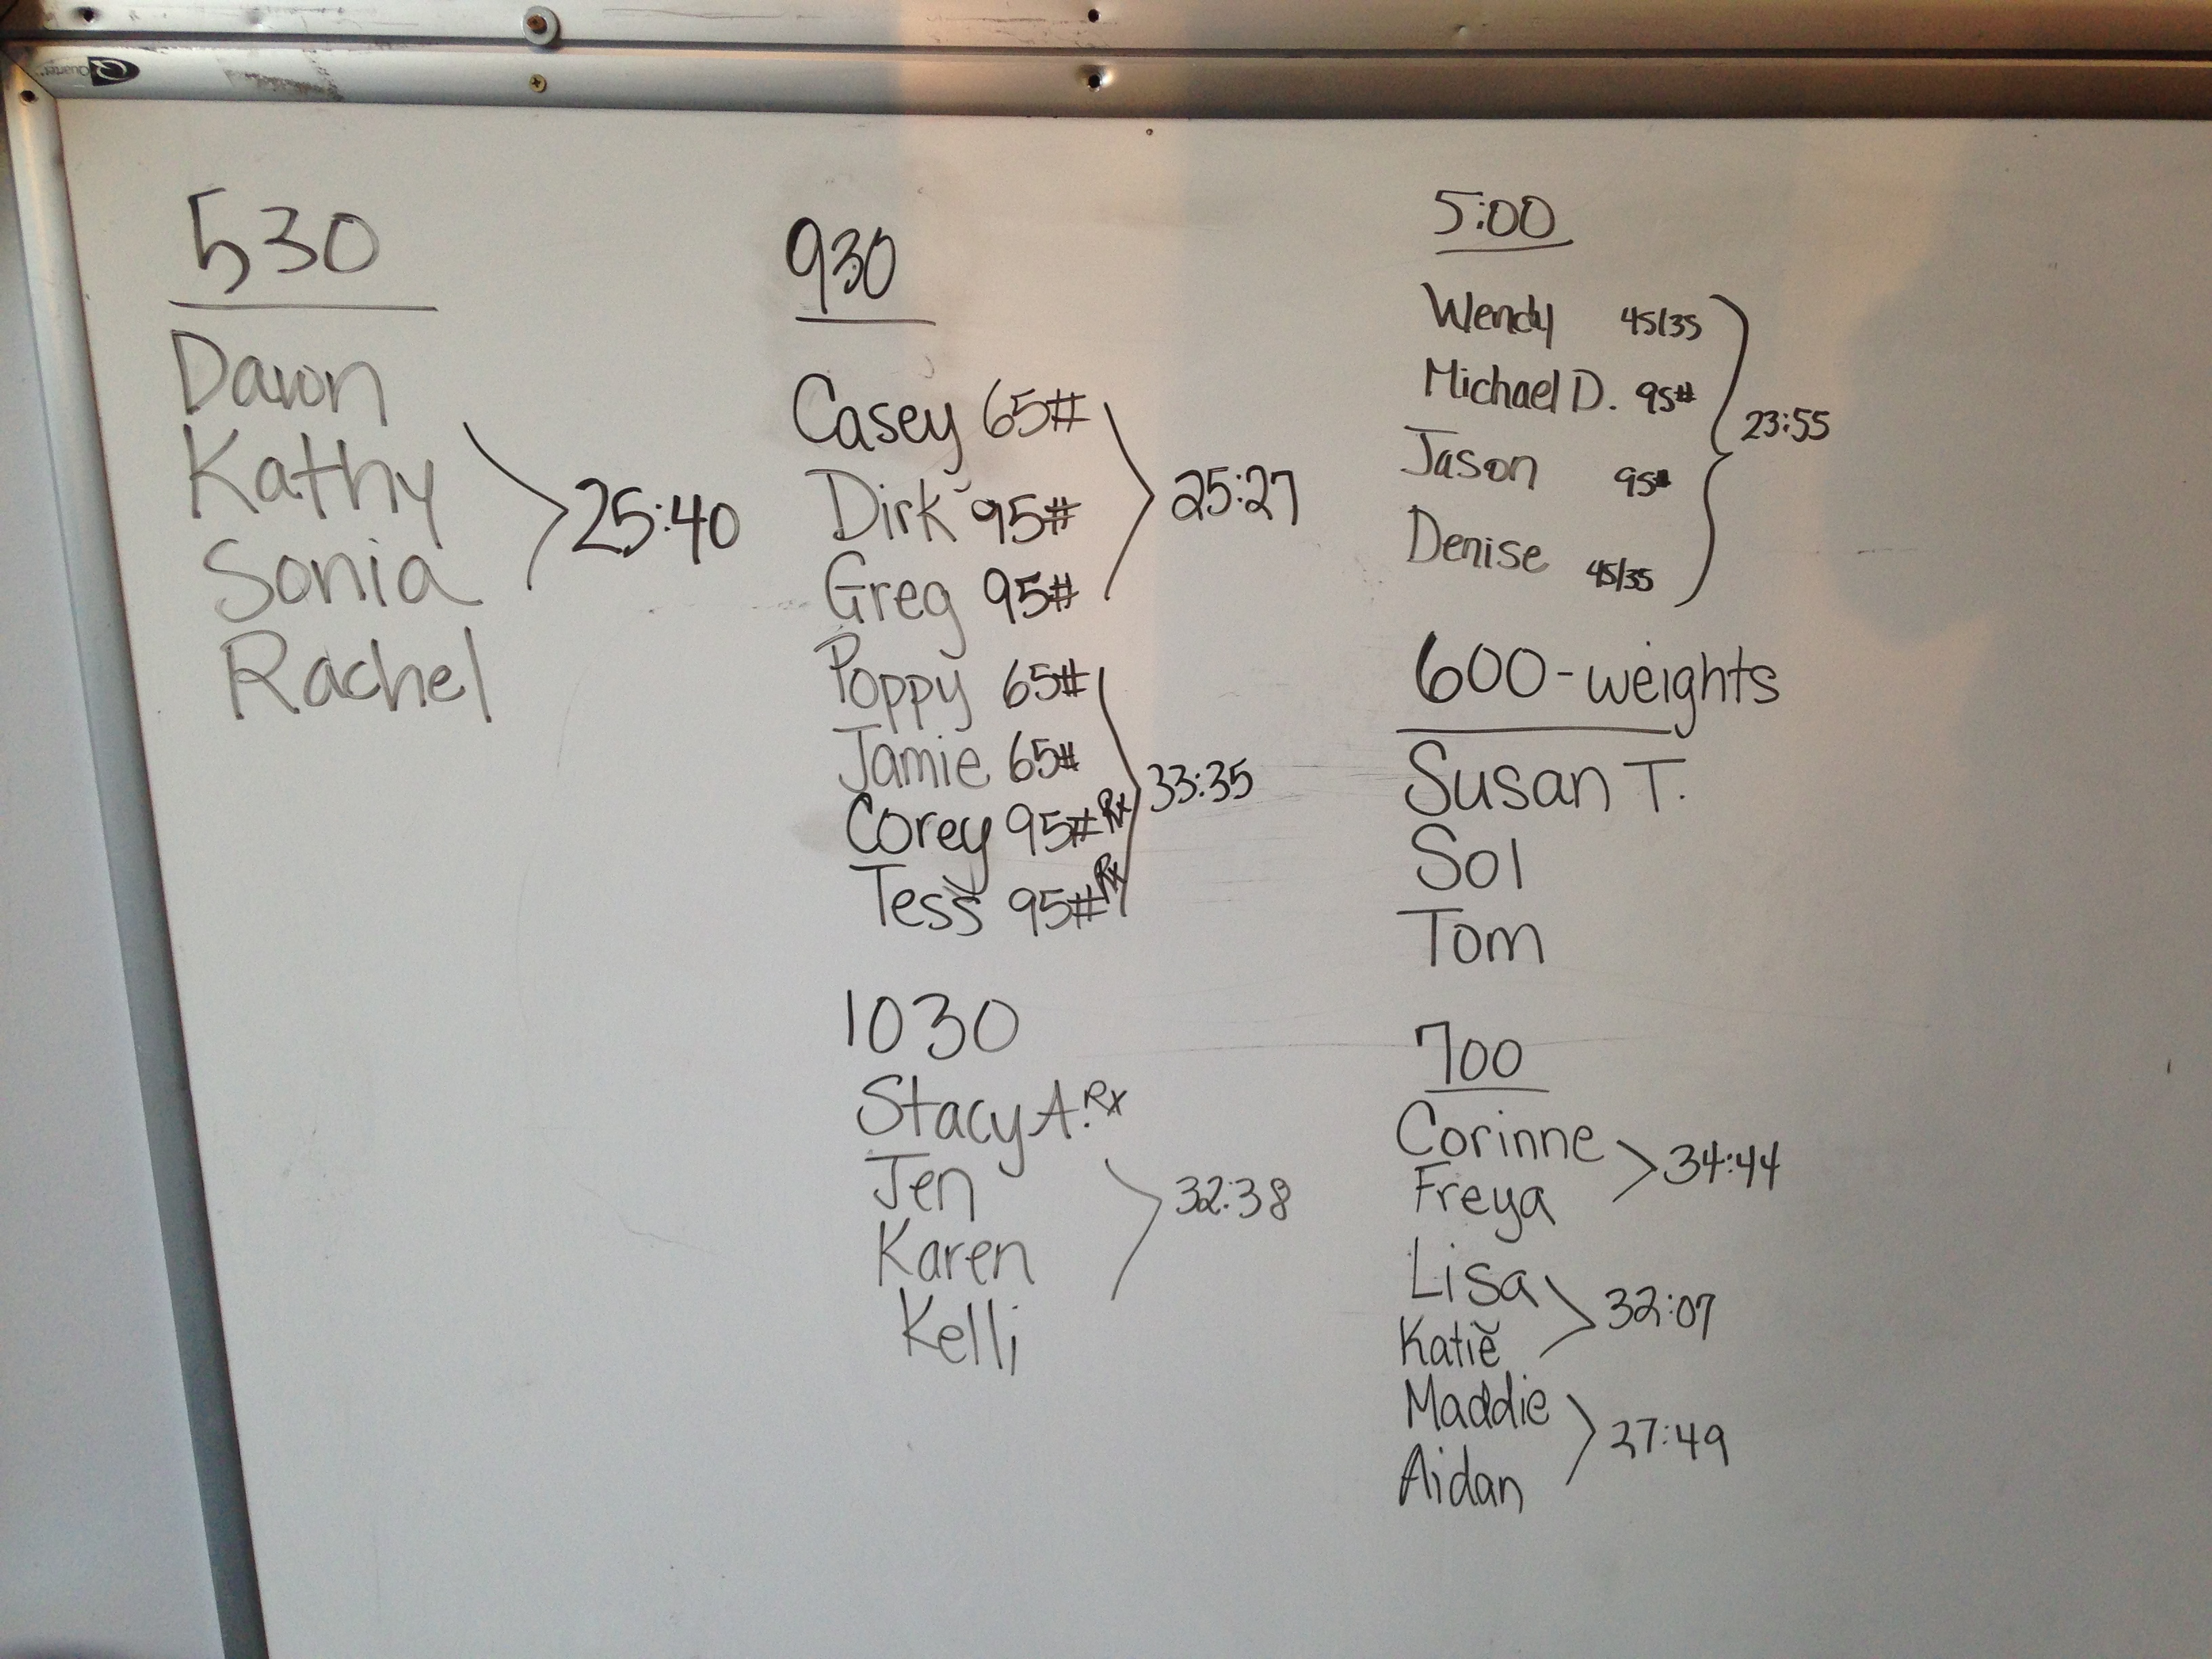 Quartet
530
Dawn
Kathy
Sonia
Rachel
25:40
930
Casey 65#
Dirk 95#
Greg 95#
25:27
Poppy 65#
Jamie 65#
Corey 95# Rx
Tess 95# Rx
33:35
1030
Stacy A. Rx
Jen
Karen
Kelli
32:38
5:00
Wendy 45/35
Michael D. 95#
Jason 95#
Denise 45/35
23:55
600-weights
Susan T.
Sol
Tom
700
Corinne
Freya
34:44
Lisa
Katie
32:07
Maddie
Aidan
27:49